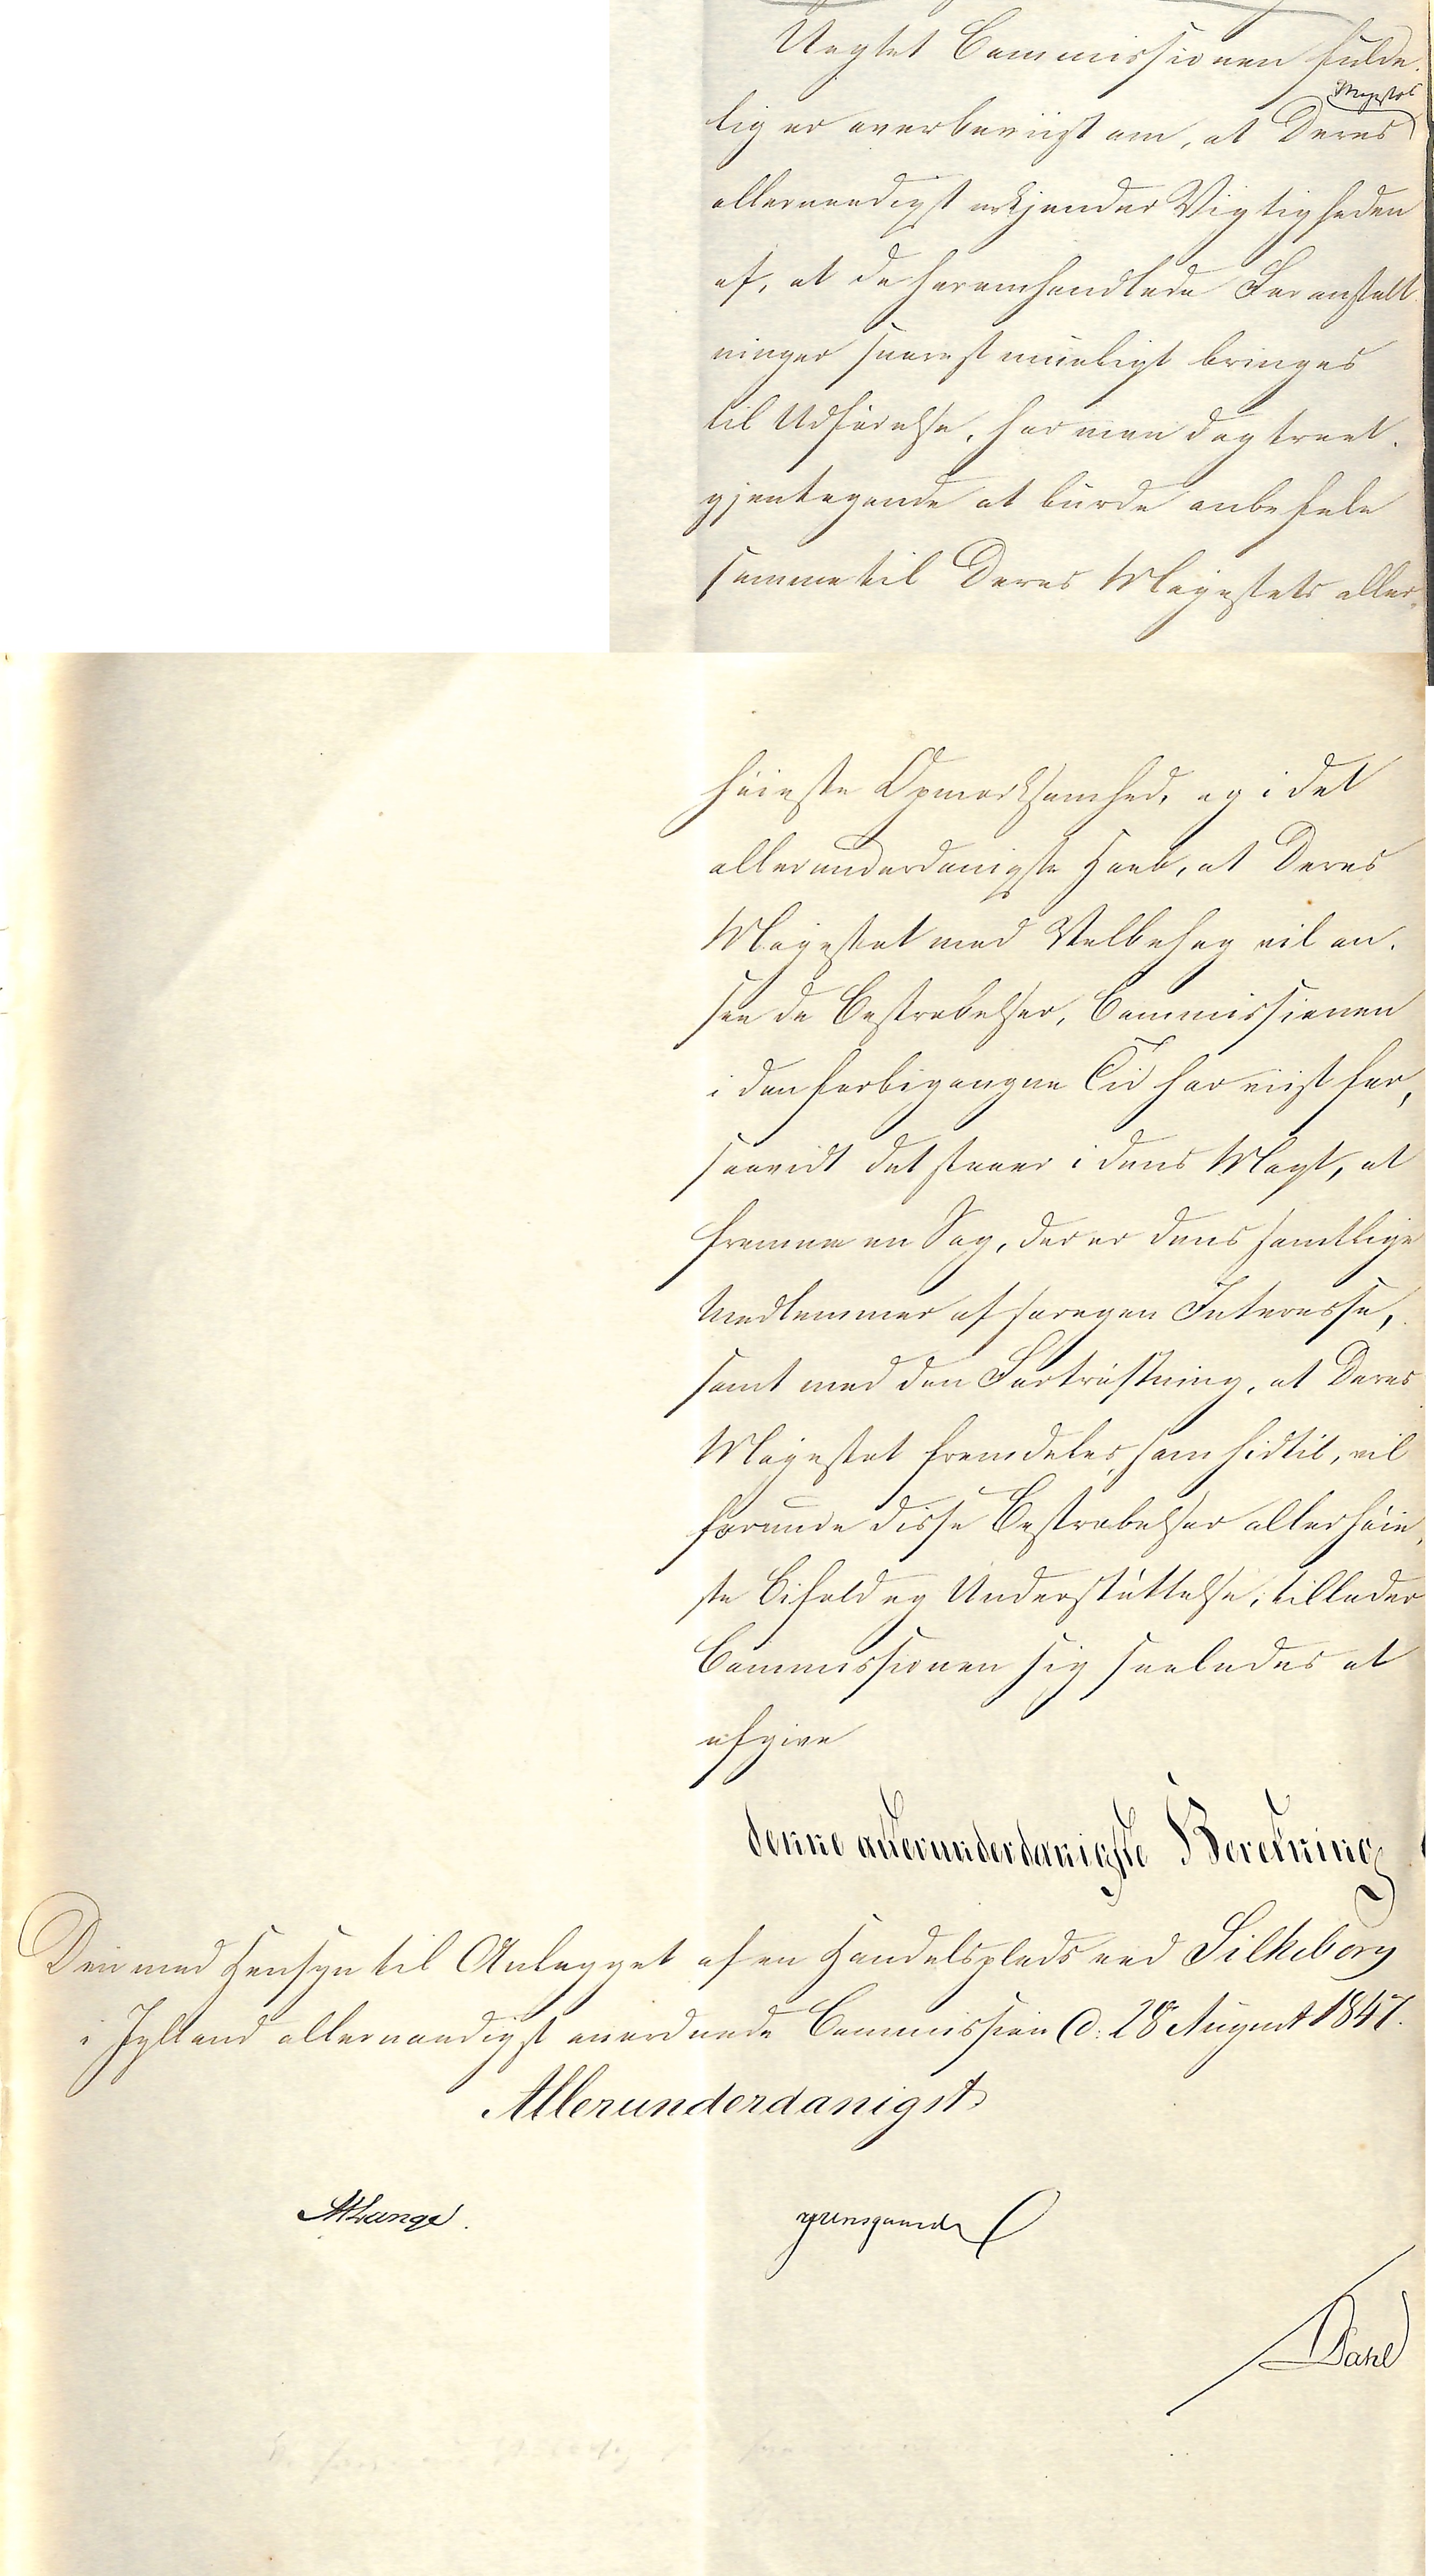 Uagtet Commissionen fulde-
Majestæt
lig er overbeviist om, at Deres
allernaadigst erkjender Vigtigheden
af, at de heromhandlede Foranstalt-
ninger snarest mueligt bringes
til Udførelse, har man dog troet
gjentagende at burde anbefale
samme til Deres Majestæts aller-
høieste Opmærksomhed, og i det
allerunderdanigste Haab, at Deres
Majestæt med Velbehag vil an-
see de Bestræbelser, Commissionen
i den forbigangne Tid har viist for,
saavidt det staaer i dens Magt, at
fremme en Sag, der er dens samtlige
Medlemmer af særegen Interesse,
samt med den Fortrøstning, at Deres
Majestæt fremdeles, som hidtil, vil
forunde disse Bestræbelser allerhøie-
ste Bifald og Understøttelse, tillader
Commissionen sig saaledes at
afgive
denne allerunderdanigste Beretning
Den med Hensyn til Anlægget af en Handelsplads ved Silkeborg
i Jylland allernaadigst anordnede Commission d: 28 August 1847.
Allerunderdanigst
Lange.
Dahl